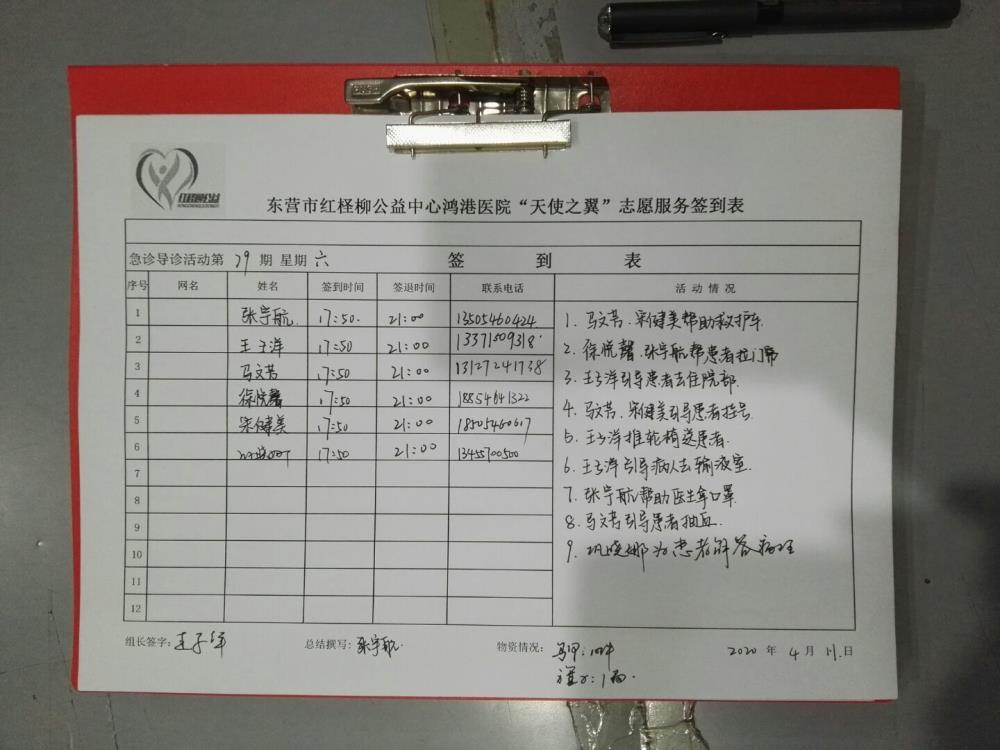 红柽柳公益
东营市红柽柳公益中心鸿港医院“天使之翼”志愿服务签到表
急诊导诊活动第 79 期 星期 六 签 到 表
序号 网名 姓名 签到时间 签退时间 联系电话 活动情况
1 张宇航 17:50 21:00 13505460424
2 王子洋 17:50 21:00 13371509318
3 马文芳 17:50 21:00 13127241738
4 徐悦馨 17:50 21:00 18854641322
5 宋健美 17:50 21:00 18505460617
6 17:50 21:00 13455700500
7
8
9
10
11
12
1. 马文芳、宋健美帮助救护车
2. 徐悦馨、张宇航帮患者拉门帘
3. 王子洋引导患者去住院部.
4. 马文芳、宋健美引导患者挂号
5. 王子洋推轮椅送患者.
6. 王子洋引导病人去输液室.
7. 张宇航帮助医生拿口罩.
8. 马文芳引导患者抽血.
9. 巩晓娜为患者解答病理
组长签字: 王子洋 总结撰写: 张宇航 物资情况: 马甲: 10件
2020 年 4 月 11 日